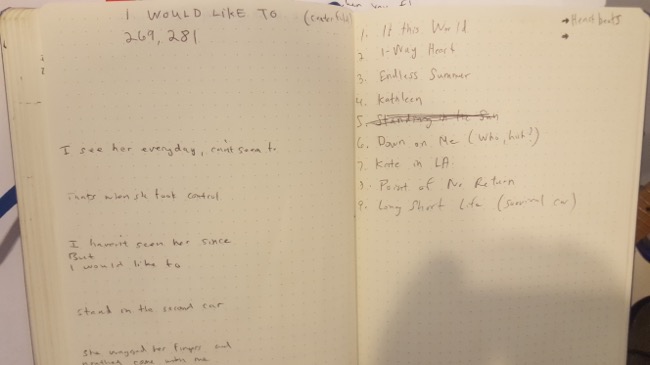 I WOULD LIKE TO
269, 281
I see her everyday, can't seem to
Thats when she took control
I haven't seen her since
But
I would like to
Stand in the second car
She wagged her finger and
come with me
1. If this World
2. 1-Way Heart
3. Endless Summer
4. Kathleen
5. Standing in the Sun
6. Down on Me (Who, huh?)
7. Kate in LA
8. Point of No Return
9. Long Short Life (survival car)
→ Heartbeats
→